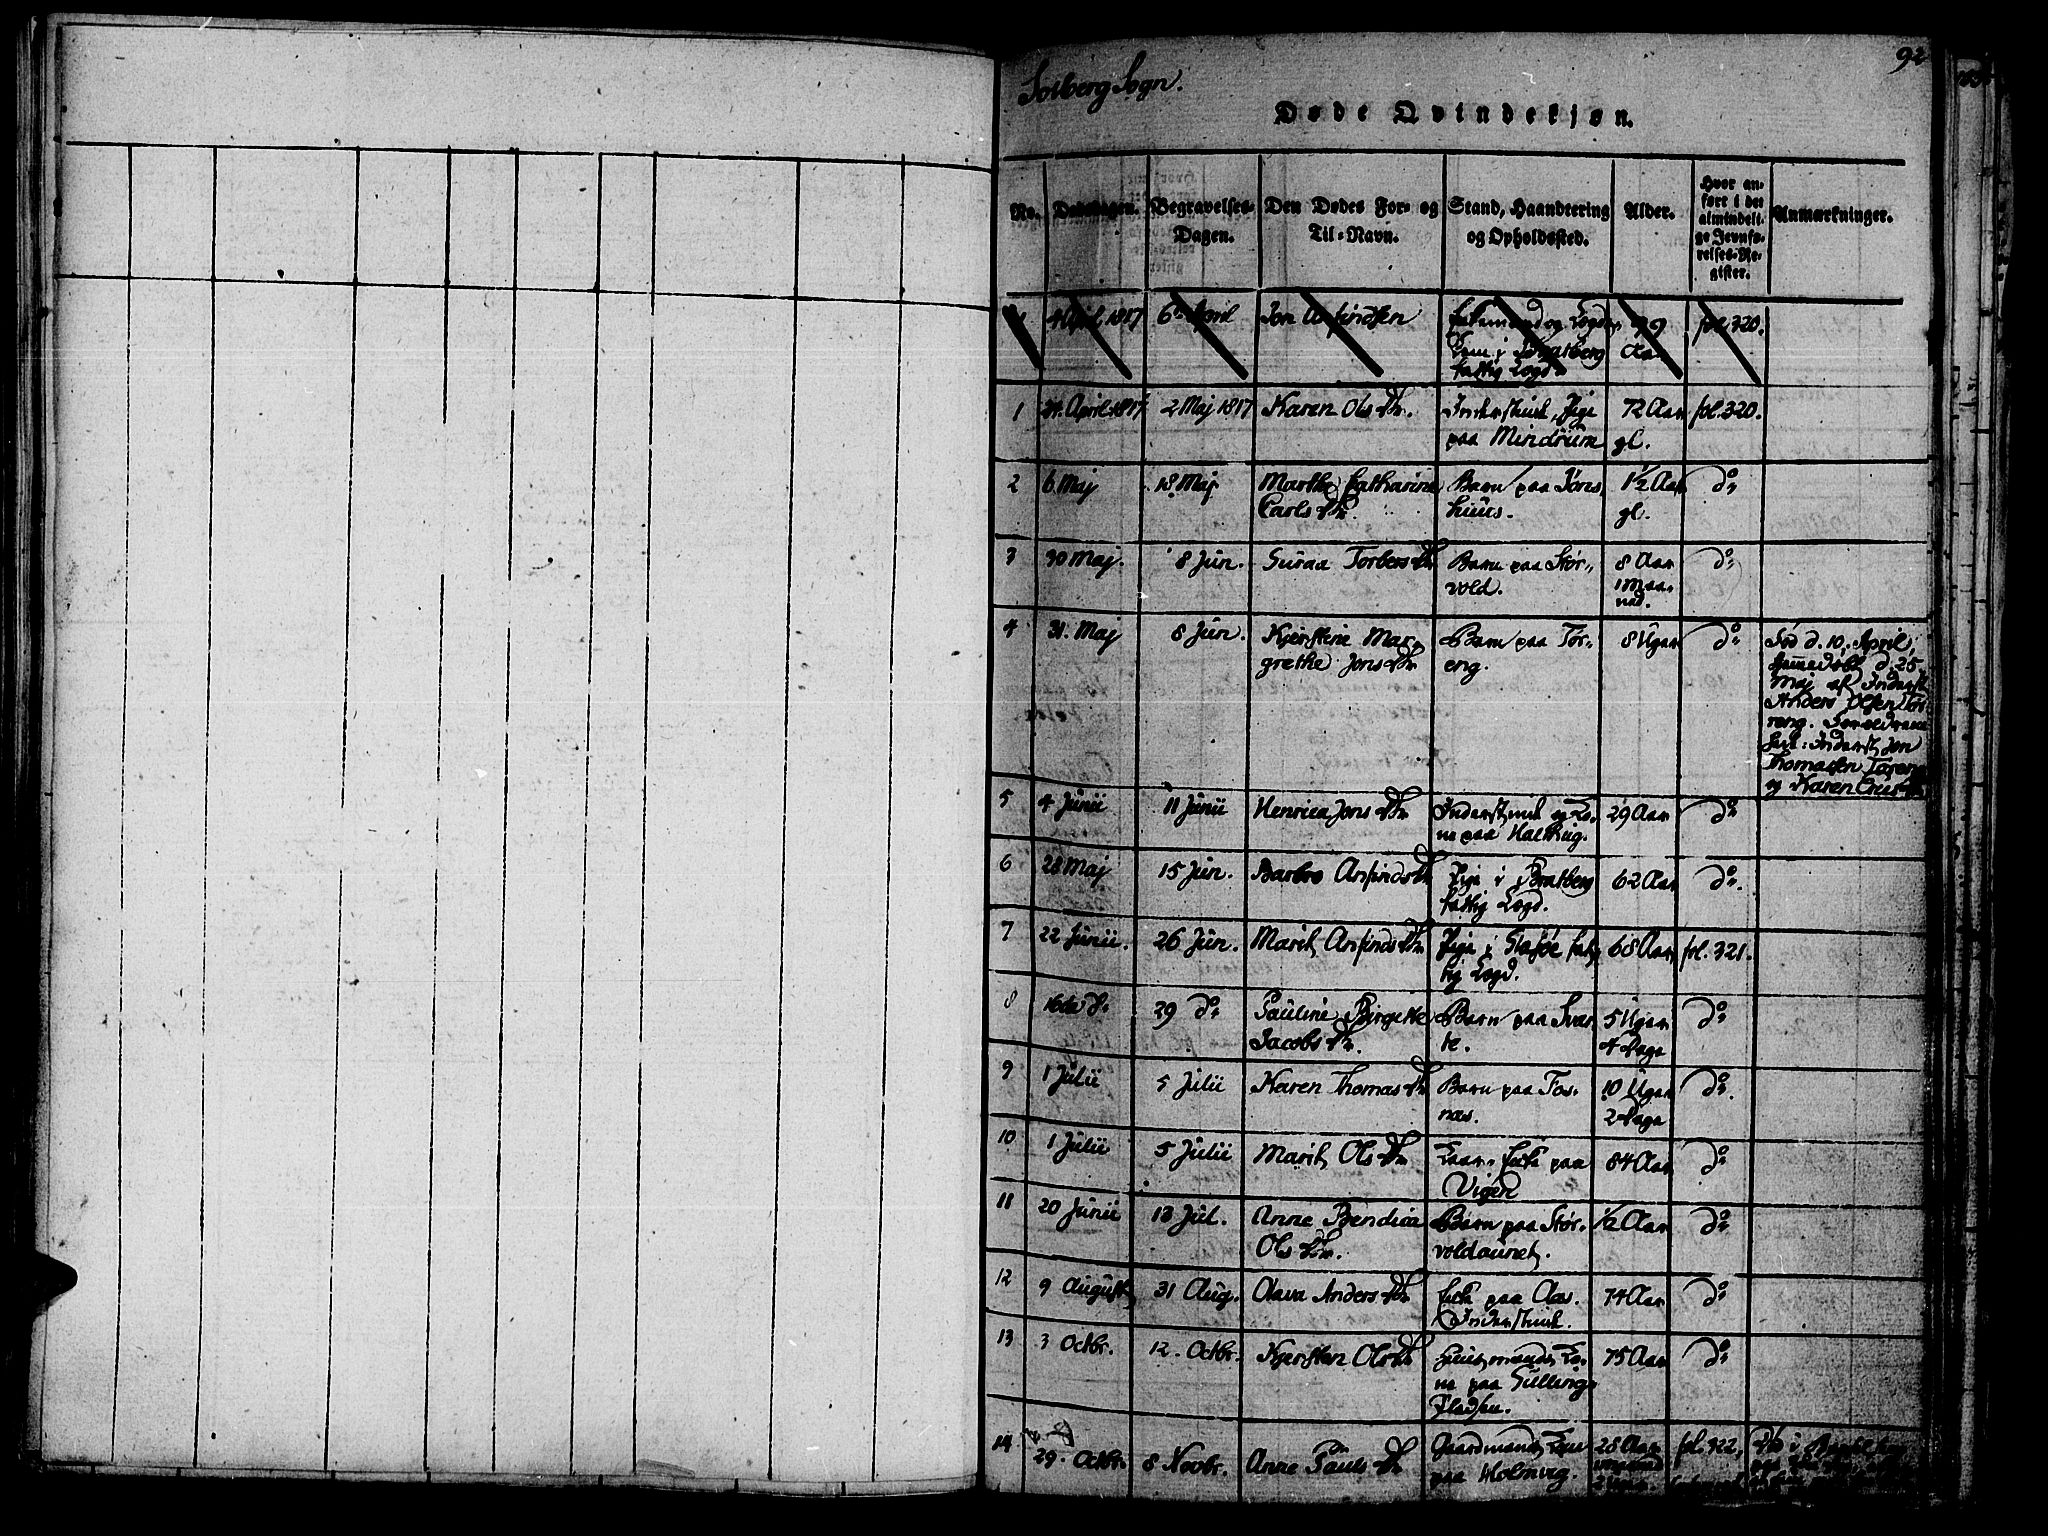 92
Solberg Sogn.
Døde Qvindekjøn.
No. Dødsdagen. Begravelses-Dagen. Den Dødes For- og Til-Navn. Stand, Haandtering og Opholdssted. Alder. Hvor anført i det almindelige Jevnførelses-Register. Anmærkninger.
4 April 1817 6 April Jon Arfindsen i Bratberg fattig Lægd fol. 320.
1 24. April 1817 2 Maj 1817 Karen Ols Dtr. Inderst, Pige paa Mindrum 72 Aar gl. fol. 320.
2 6 Maj 18 Maj Marthe Catharina Carls Dtr. Barn paa huus. 1½ Aar gl. do
3 30 Maj. 8 Jun. Guraa Torbers Dtr Barn paa Stør-vold. 8 Aar 1 Maa-ned. do
4 31. Maj 8 Jun. Kjerstine Mar-grethe Jons Dtr Barn paa Tør-eng. 8 Uger do Fød d. 10. April, hjemmedøbt d. 25 Maj af Inderst Anders Olsen Tør-eng. Forældrene Inderst Jon Thomassen Tøreng og Karen
5 4 Junii 11 Junii Henrica Jons Dtr Inderst og Ko-ne paa Halthug. 29 Aar do
6 28 Maj 15 Jun. Barbro Arfinds Dtr Pige i Bratberg fattig Lægd. 62 Aar do.
7 22 Junii. 26 Jun. Marit Arfinds Dtr Pige i fat-tig Lægd. 68 Aar fol. 321.
8 16de do 29 do Pauline Birgitte Jacobs Dtr. Barn paa Svar-te. 5 Uger 4 Dage do
9 1 Julii 5 Julii Karen Thomas Dtr Barn paa Tos-næs. 10 Uger 2 Dage do.
10 1 Julii 5 Julii Marit Ols Dtr Enke paa Vigen 84 Aar do
11 20 Junii 13 Jul. Anne Bendica Ols Dtr. Barn paa Stør-voldaunet. ½ Aar do
12 9 August 31 Aug. Olava Anders Dtr Enke paa Aas. Inderst. 74 Aar do
13 3 Octbr. 12. Octbr. Kjersten Ols Dtr Huusmands Ko-ne paa Gulling-Pladsen. 75 Aar do
14 29. Octbr. 8 Novbr. Anne Pauls Dtr Gaardmands Kone paa Holmvig. 28 Aar fol. 322,